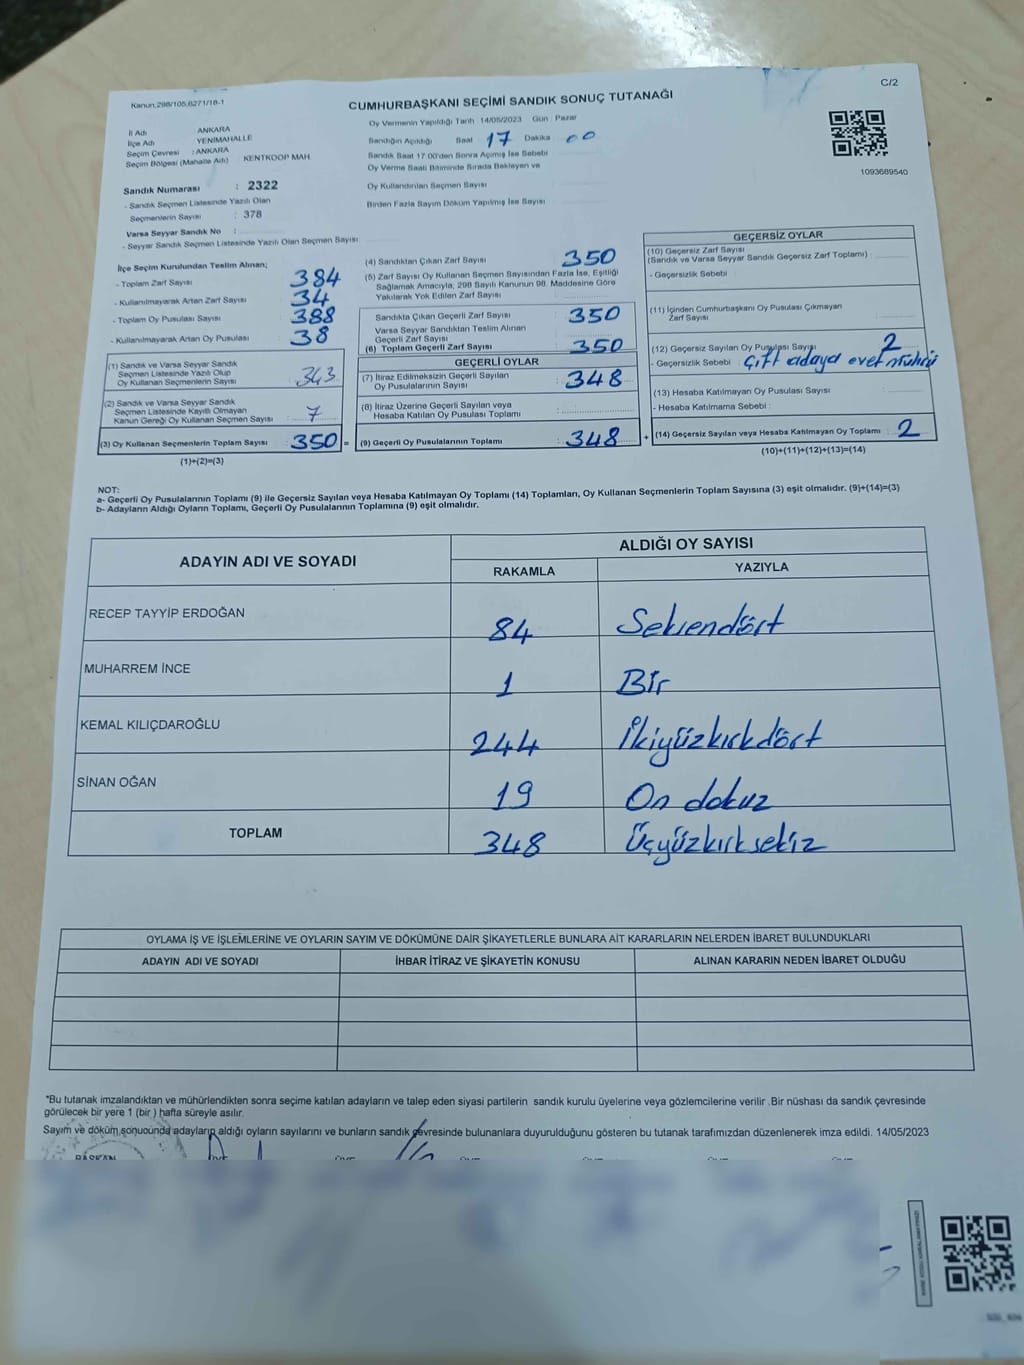 C/2
Kanun;298/105,6271/18-1
CUMHURBAŞKANI SEÇİMİ SANDIK SONUÇ TUTANAĞI
İl Adı ANKARA
İlçe Adı YENİMAHALLE
Seçim Çevresi : ANKARA
Seçim Bölgesi (Mahalle Adı) KENTKOOP MAH.
Sandık Numarası : 2322
- Sandık Seçmen Listesinde Yazılı Olan
Seçmenlerin Sayısı : 378
Varsa Seyyar Sandık No :
- Seyyar Sandık Seçmen Listesinde Yazılı Olan Seçmen Sayısı
Oy Vermenin Yapıldığı Tarih : 14/05/2023 Gün : Pazar
Sandığın Açıldığı Saat : 17 Dakika : 00
Sandık Saat 17.00'den Sonra Açılmış İse Sebebi
Oy Verme Saati Bitiminde Sırada Bekleyen ve
Oy Kullandırılan Seçmen Sayısı
Birden Fazla Sayım Döküm Yapılmış İse Sayısı
1093689540
İlçe Seçim Kurulundan Teslim Alınan;
- Toplam Zarf Sayısı : 384
- Kullanılmayarak Artan Zarf Sayısı : 34
- Toplam Oy Pusulası Sayısı : 388
- Kullanılmayarak Artan Oy Pusulası : 38
(1) Sandık ve Varsa Seyyar Sandık
Seçmen Listesinde Yazılı Olup
Oy Kullanan Seçmenlerin Sayısı : 343
(2) Sandık ve Varsa Seyyar Sandık
Seçmen Listesinde Kayıtlı Olmayan
Kanun Gereği Oy Kullanan Seçmen Sayısı : 7
(3) Oy Kullanan Seçmenlerin Toplam Sayısı : 350 =
(1)+(2)=(3)
(4) Sandıktan Çıkan Zarf Sayısı : 350
(5) Zarf Sayısı Oy Kullanan Seçmen Sayısından Fazla İse, Eşitliği
Sağlamak Amacıyla, 298 Sayılı Kanunun 98. Maddesine Göre
Yakılarak Yok Edilen Zarf Sayısı
Sandıkta Çıkan Geçerli Zarf Sayısı : 350
Varsa Seyyar Sandıktan Teslim Alınan
Geçerli Zarf Sayısı
(6) Toplam Geçerli Zarf Sayısı : 350
GEÇERLİ OYLAR
(7) İtiraz Edilmeksizin Geçerli Sayılan
Oy Pusulalarının Sayısı : 348
(8) İtiraz Üzerine Geçerli Sayılan veya
Hesaba Katılan Oy Pusulası Toplamı
(9) Geçerli Oy Pusulalarının Toplamı : 348 +
GEÇERSİZ OYLAR
(10) Geçersiz Zarf Sayısı
(Sandık ve Varsa Seyyar Sandık Geçersiz Zarf Toplamı)
- Geçersizlik Sebebi :
(11) İçinden Cumhurbaşkanı Oy Pusulası Çıkmayan
Zarf Sayısı
(12) Geçersiz Sayılan Oy Pusulası Sayısı : 2
- Geçersizlik Sebebi : Çift adaya evet mührü
(13) Hesaba Katılmayan Oy Pusulası Sayısı
- Hesaba Katılmama Sebebi :
(14) Geçersiz Sayılan veya Hesaba Katılmayan Oy Toplamı : 2
(10)+(11)+(12)+(13)=(14)
NOT:
a- Geçerli Oy Pusulalarının Toplamı (9) ile Geçersiz Sayılan veya Hesaba Katılmayan Oy Toplamı (14) Toplamları, Oy Kullanan Seçmenlerin Toplam Sayısına (3) eşit olmalıdır. (9)+(14)=(3)
b- Adayların Aldığı Oyların Toplamı, Geçerli Oy Pusulalarının Toplamına (9) eşit olmalıdır.
ADAYIN ADI VE SOYADI ALDIĞI OY SAYISI
RAKAMLA YAZIYLA
RECEP TAYYİP ERDOĞAN 84 Seksendört
MUHARREM İNCE 1 Bir
KEMAL KILIÇDAROĞLU 244 İkiyüzkırkdört
SİNAN OĞAN 19 On dokuz
TOPLAM 348 Üçyüzkırksekiz
OYLAMA İŞ VE İŞLEMLERİNE VE OYLARIN SAYIM VE DÖKÜMÜNE DAİR ŞİKAYETLERLE BUNLARA AİT KARARLARIN NELERDEN İBARET BULUNDUKLARI
ADAYIN ADI VE SOYADI İHBAR İTİRAZ VE ŞİKAYETİN KONUSU ALINAN KARARIN NEDEN İBARET OLDUĞU
*Bu tutanak imzalandıktan ve mühürlendikten sonra seçime katılan adayların ve talep eden siyasi partilerin sandık kurulu üyelerine veya gözlemcilerine verilir .Bir nüshası da sandık çevresinde
görülecek bir yere 1 (bir ) hafta süreyle asılır.
Sayım ve döküm sonucunda adayların aldığı oyların sayılarını ve bunların sandık çevresinde bulunanlara duyurulduğunu gösteren bu tutanak tarafımızdan düzenlenerek imza edildi. 14/05/2023
BAŞKAN